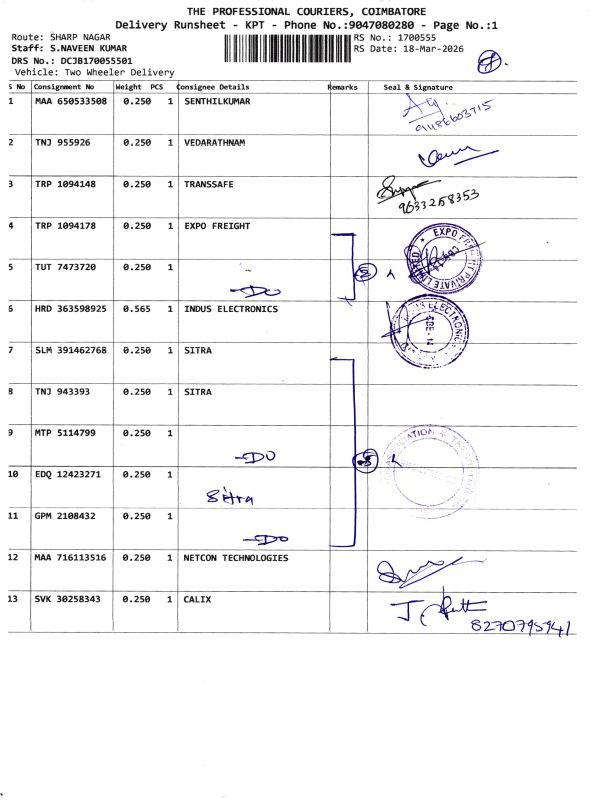 THE PROFESSIONAL COURIERS, COIMBATORE
Delivery Runsheet - KPT - Phone No.:9047080280 - Page No.:1
Route: SHARP NAGAR RS No.: 1700555
Staff: S.NAVEEN KUMAR RS Date: 18-Mar-2026
DRS No.: DCJB170055501
Vehicle: Two Wheeler Delivery
S No Consignment No Weight PCS Consignee Details Remarks Seal & Signature
1 MAA 650533508 0.250 1 SENTHILKUMAR
9486603715
2 TNJ 955926 0.250 1 VEDARATHNAM
3 TRP 1094148 0.250 1 TRANSSAFE
9633258353
4 TRP 1094178 0.250 1 EXPO FREIGHT
EXPO FREIGHT PRIVATE LIMITED
5 TUT 7473720 0.250 1
-DO
6 HRD 363598925 0.565 1 INDUS ELECTRONICS
ELECTRONICS
7 SLM 391462768 0.250 1 SITRA
8 TNJ 943393 0.250 1 SITRA
9 MTP 5114799 0.250 1
-DO
10 EDQ 12423271 0.250 1
Sitra
11 GPM 2108432 0.250 1
-DO
12 MAA 716113516 0.250 1 NETCON TECHNOLOGIES
13 SVK 30258343 0.250 1 CALIX
8270795941